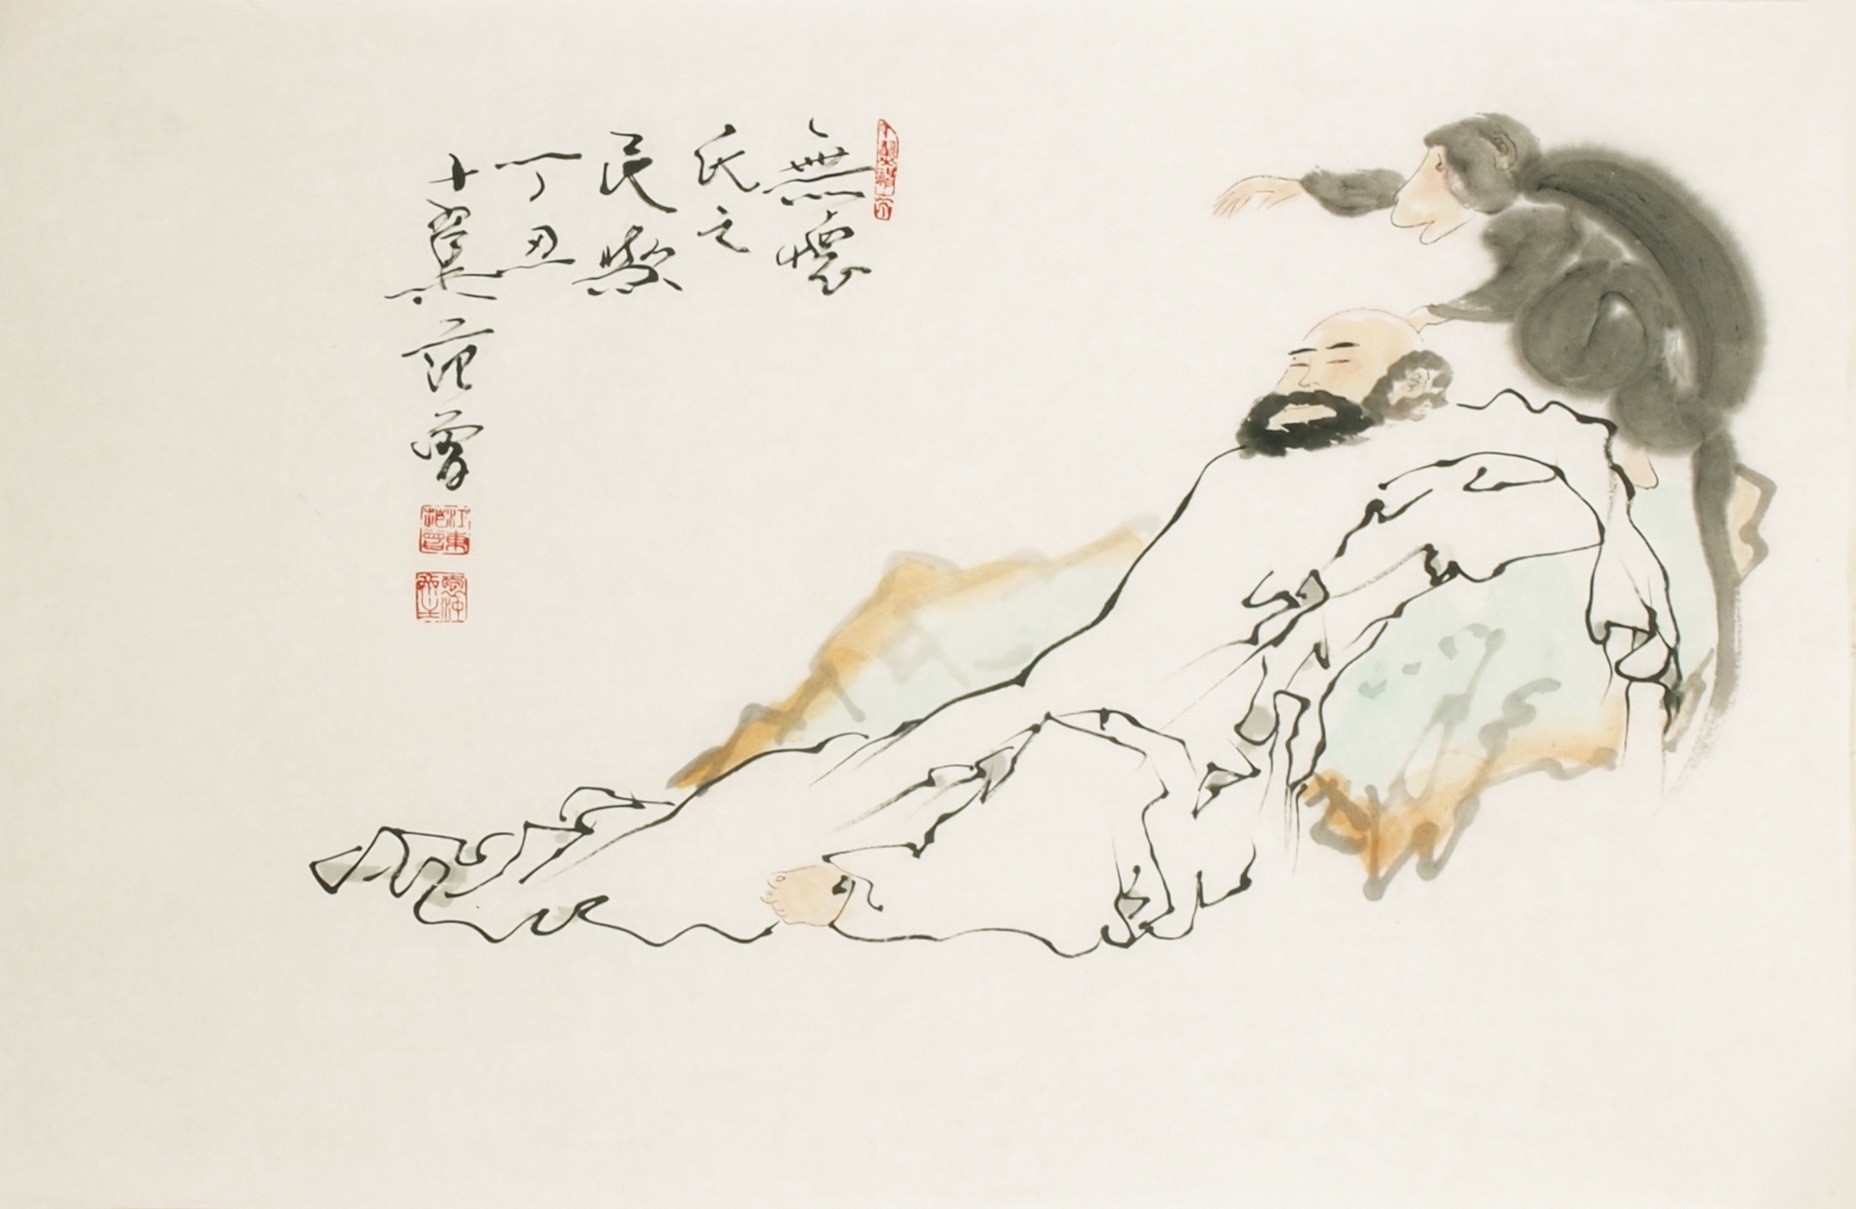 無懷
氏之
民歟
丁丑
十翼范曾
江東
范曾